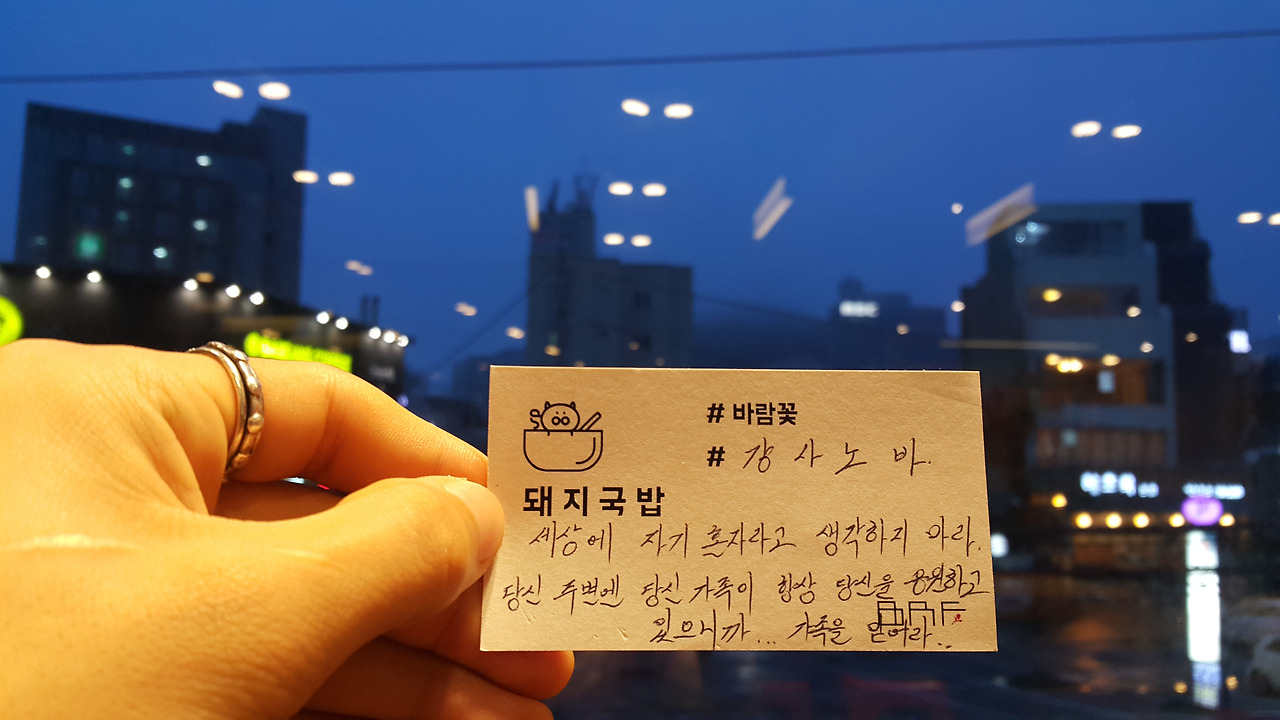 # 바람꽃
# 강사노바.
돼지국밥
세상에 자기 혼자라고 생각하지 마라.
당신 주변엔 당신 가족이 항상 당신을 응원하고
있으니까... 가족을 믿어라..